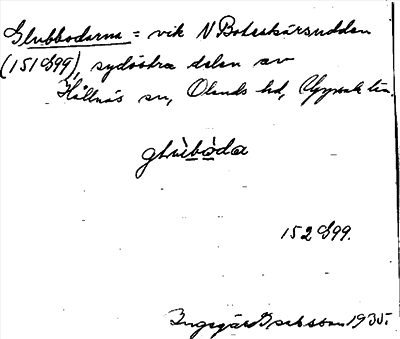 Glubbodarna = vik N Boteskärsudden
(151 S99), sydöstra delen av
Hållnäs sn, Olands hd, Uppsala län.
glùbòda
152 S99.
Ingegärd Isaksson 1935.